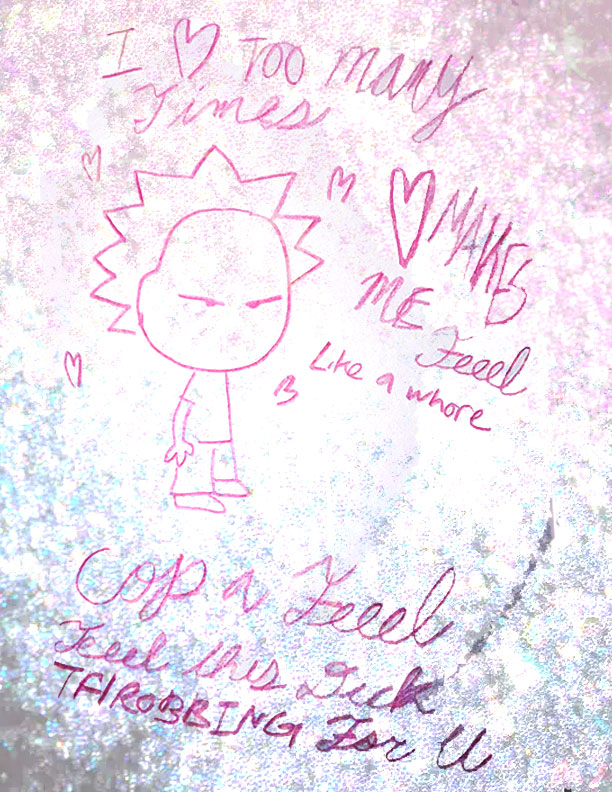 I ♡ Too many
Times
♡ MAKES
ME Feeel
Like a whore
Cop a Feeel
Feeel this Dick
THROBBING For U